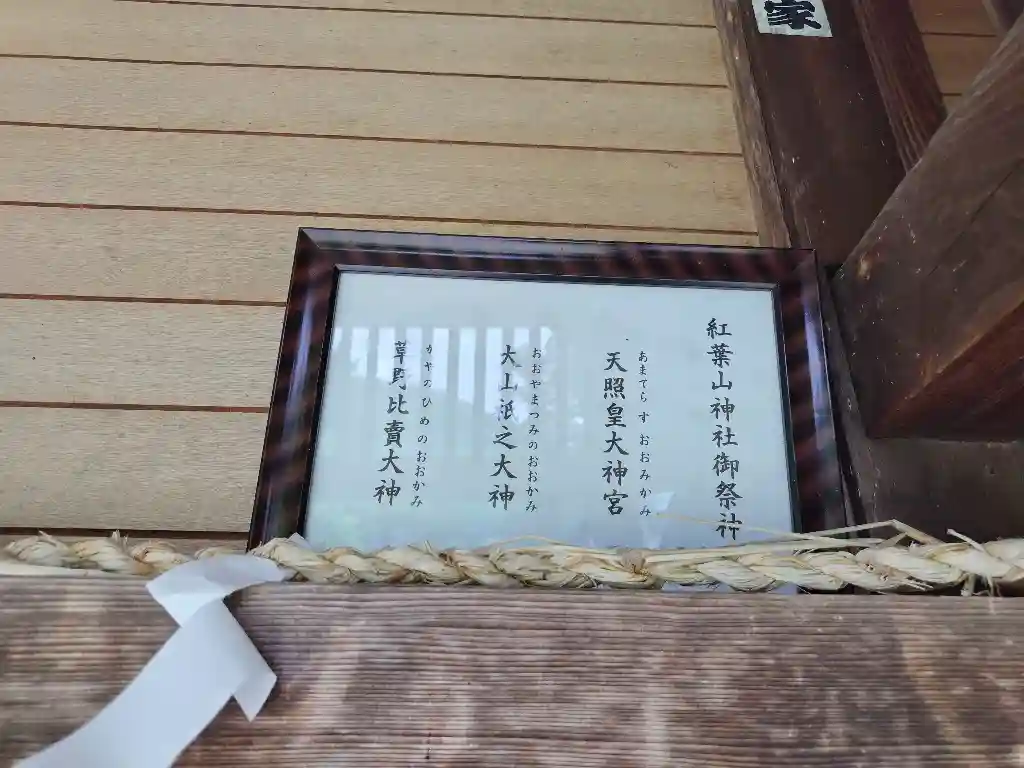 家
紅葉山神社御祭社
あまてらすおおみかみ
天照皇大神宮
おおやまつみのおおかみ
大山祇之大神
かやのひめのおおかみ
草野比賣大神